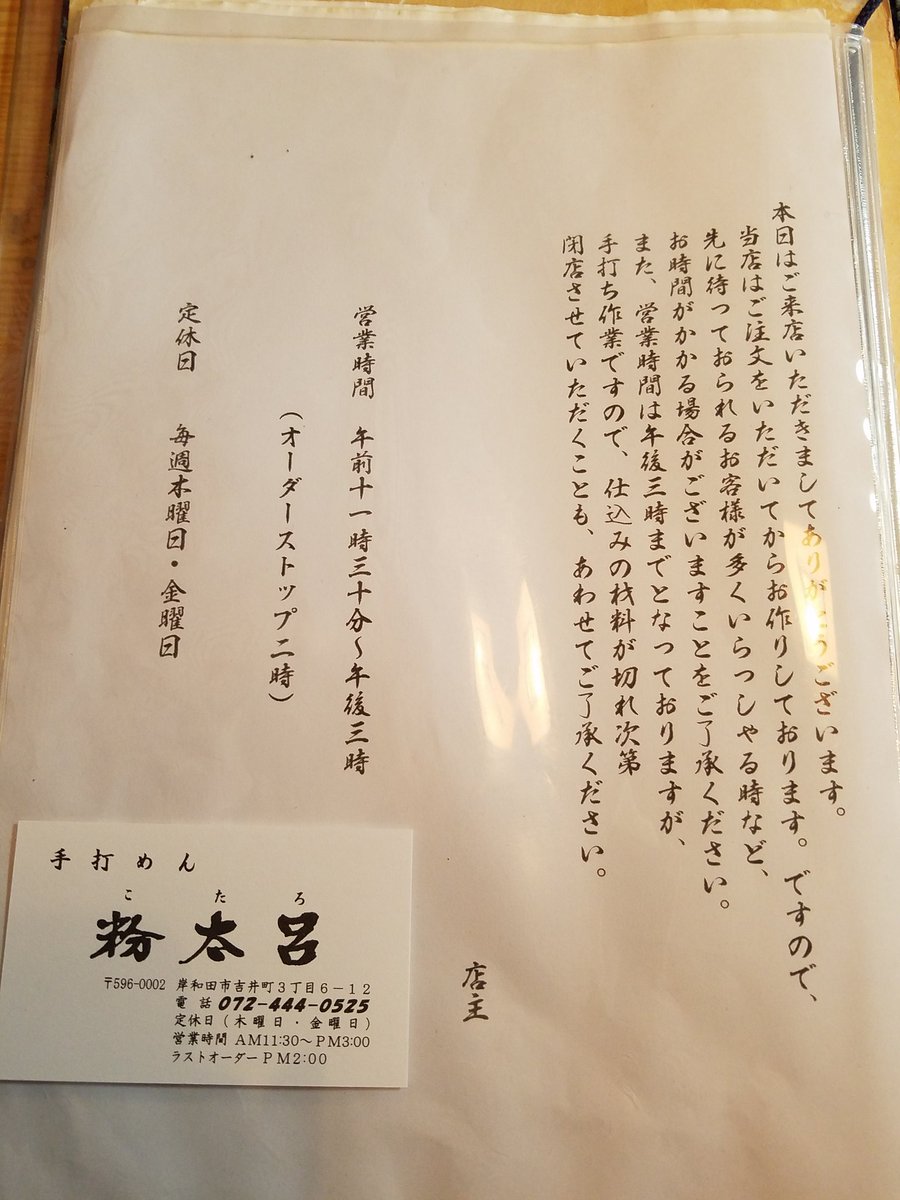 本日はご来店いただきましてありがとうございます。
当店はご注文をいただいてからお作りしております。ですので、
先に待っておられるお客様が多くいらっしゃる時など、
お時間がかかる場合がございますことをご了承ください。
また、営業時間は午後三時までとなっておりますが、
手打ち作業ですので、仕込みの材料が切れ次第
閉店させていただくことも、あわせてご了承ください。
店主
営業時間 午前十一時三十分～午後三時
(オーダーストップ二時)
定休日 毎週木曜日・金曜日
手打めん
こたろ
粉太呂
〒596-0002 岸和田市吉井町3丁目6-12
電話 072-444-0525
定休日(木曜日・金曜日)
営業時間 AM11:30～PM3:00
ラストオーダーPM2:00